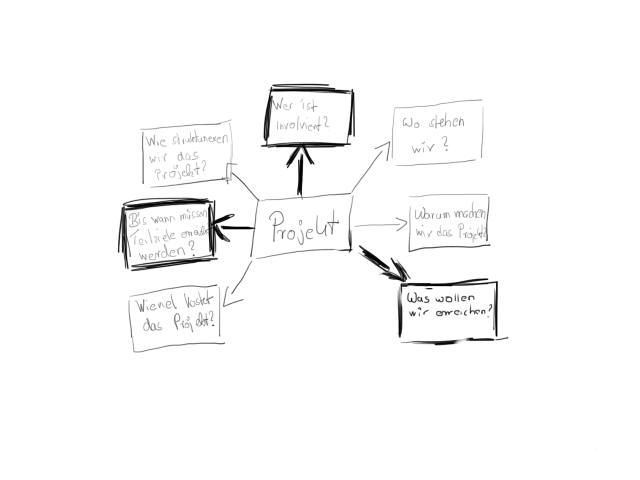 Wer ist
involviert?
Wo stehen
wir?
Wie strukturieren
wir das
Projekt?
Bis wann müssen
Teilziele erreicht
werden?
Projekt
Warum machen
wir das Projekt?
Wieviel kostet
das Projekt?
Was wollen
wir erreichen?